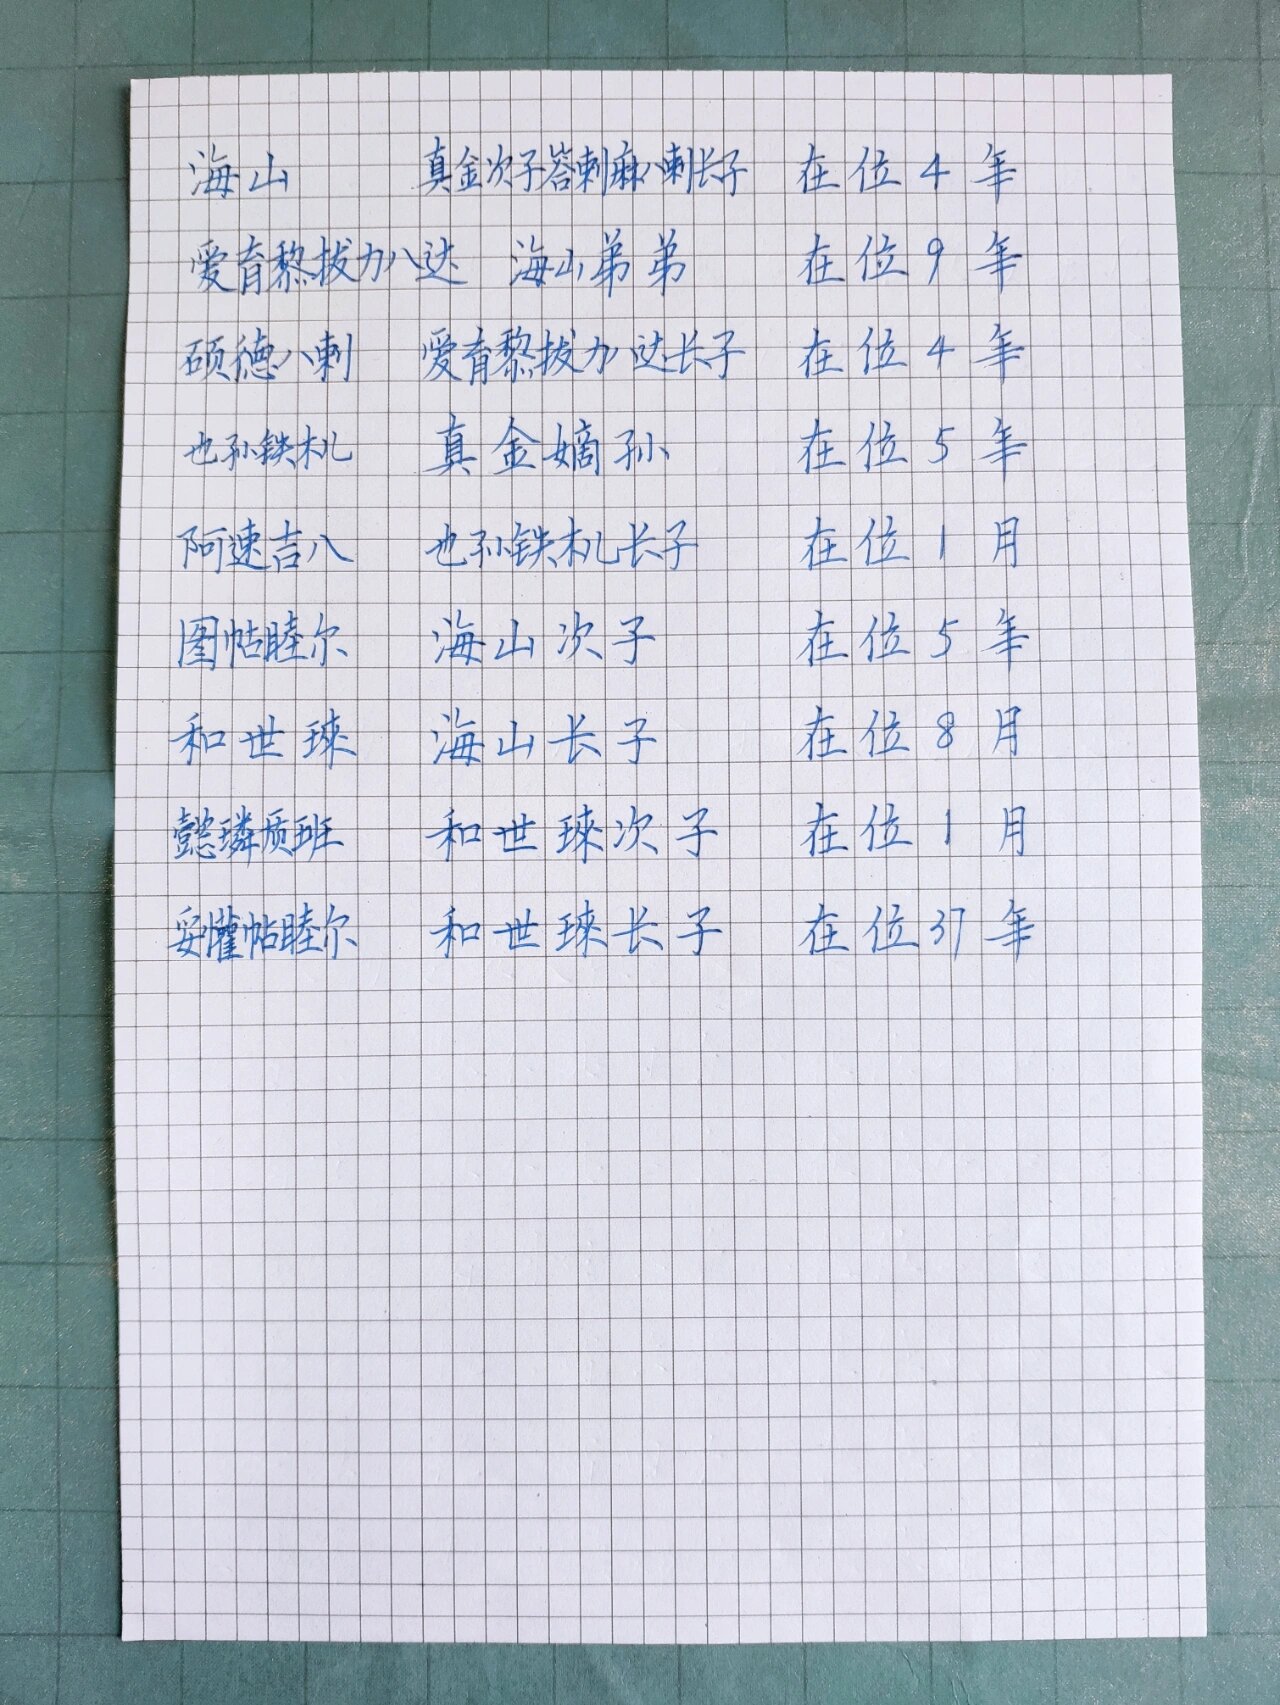 海山 真金次子答剌麻八剌长子 在位4年
爱育黎拔力八达 海山弟弟 在位9年
硕德八剌 爱育黎拔力八达长子 在位4年
也孙铁木儿 真金嫡孙 在位5年
阿速吉八 也孙铁木儿长子 在位1月
图帖睦尔 海山次子 在位5年
和世㻋 海山长子 在位8月
懿璘质班 和世㻋次子 在位1月
妥懽帖睦尔 和世㻋长子 在位37年